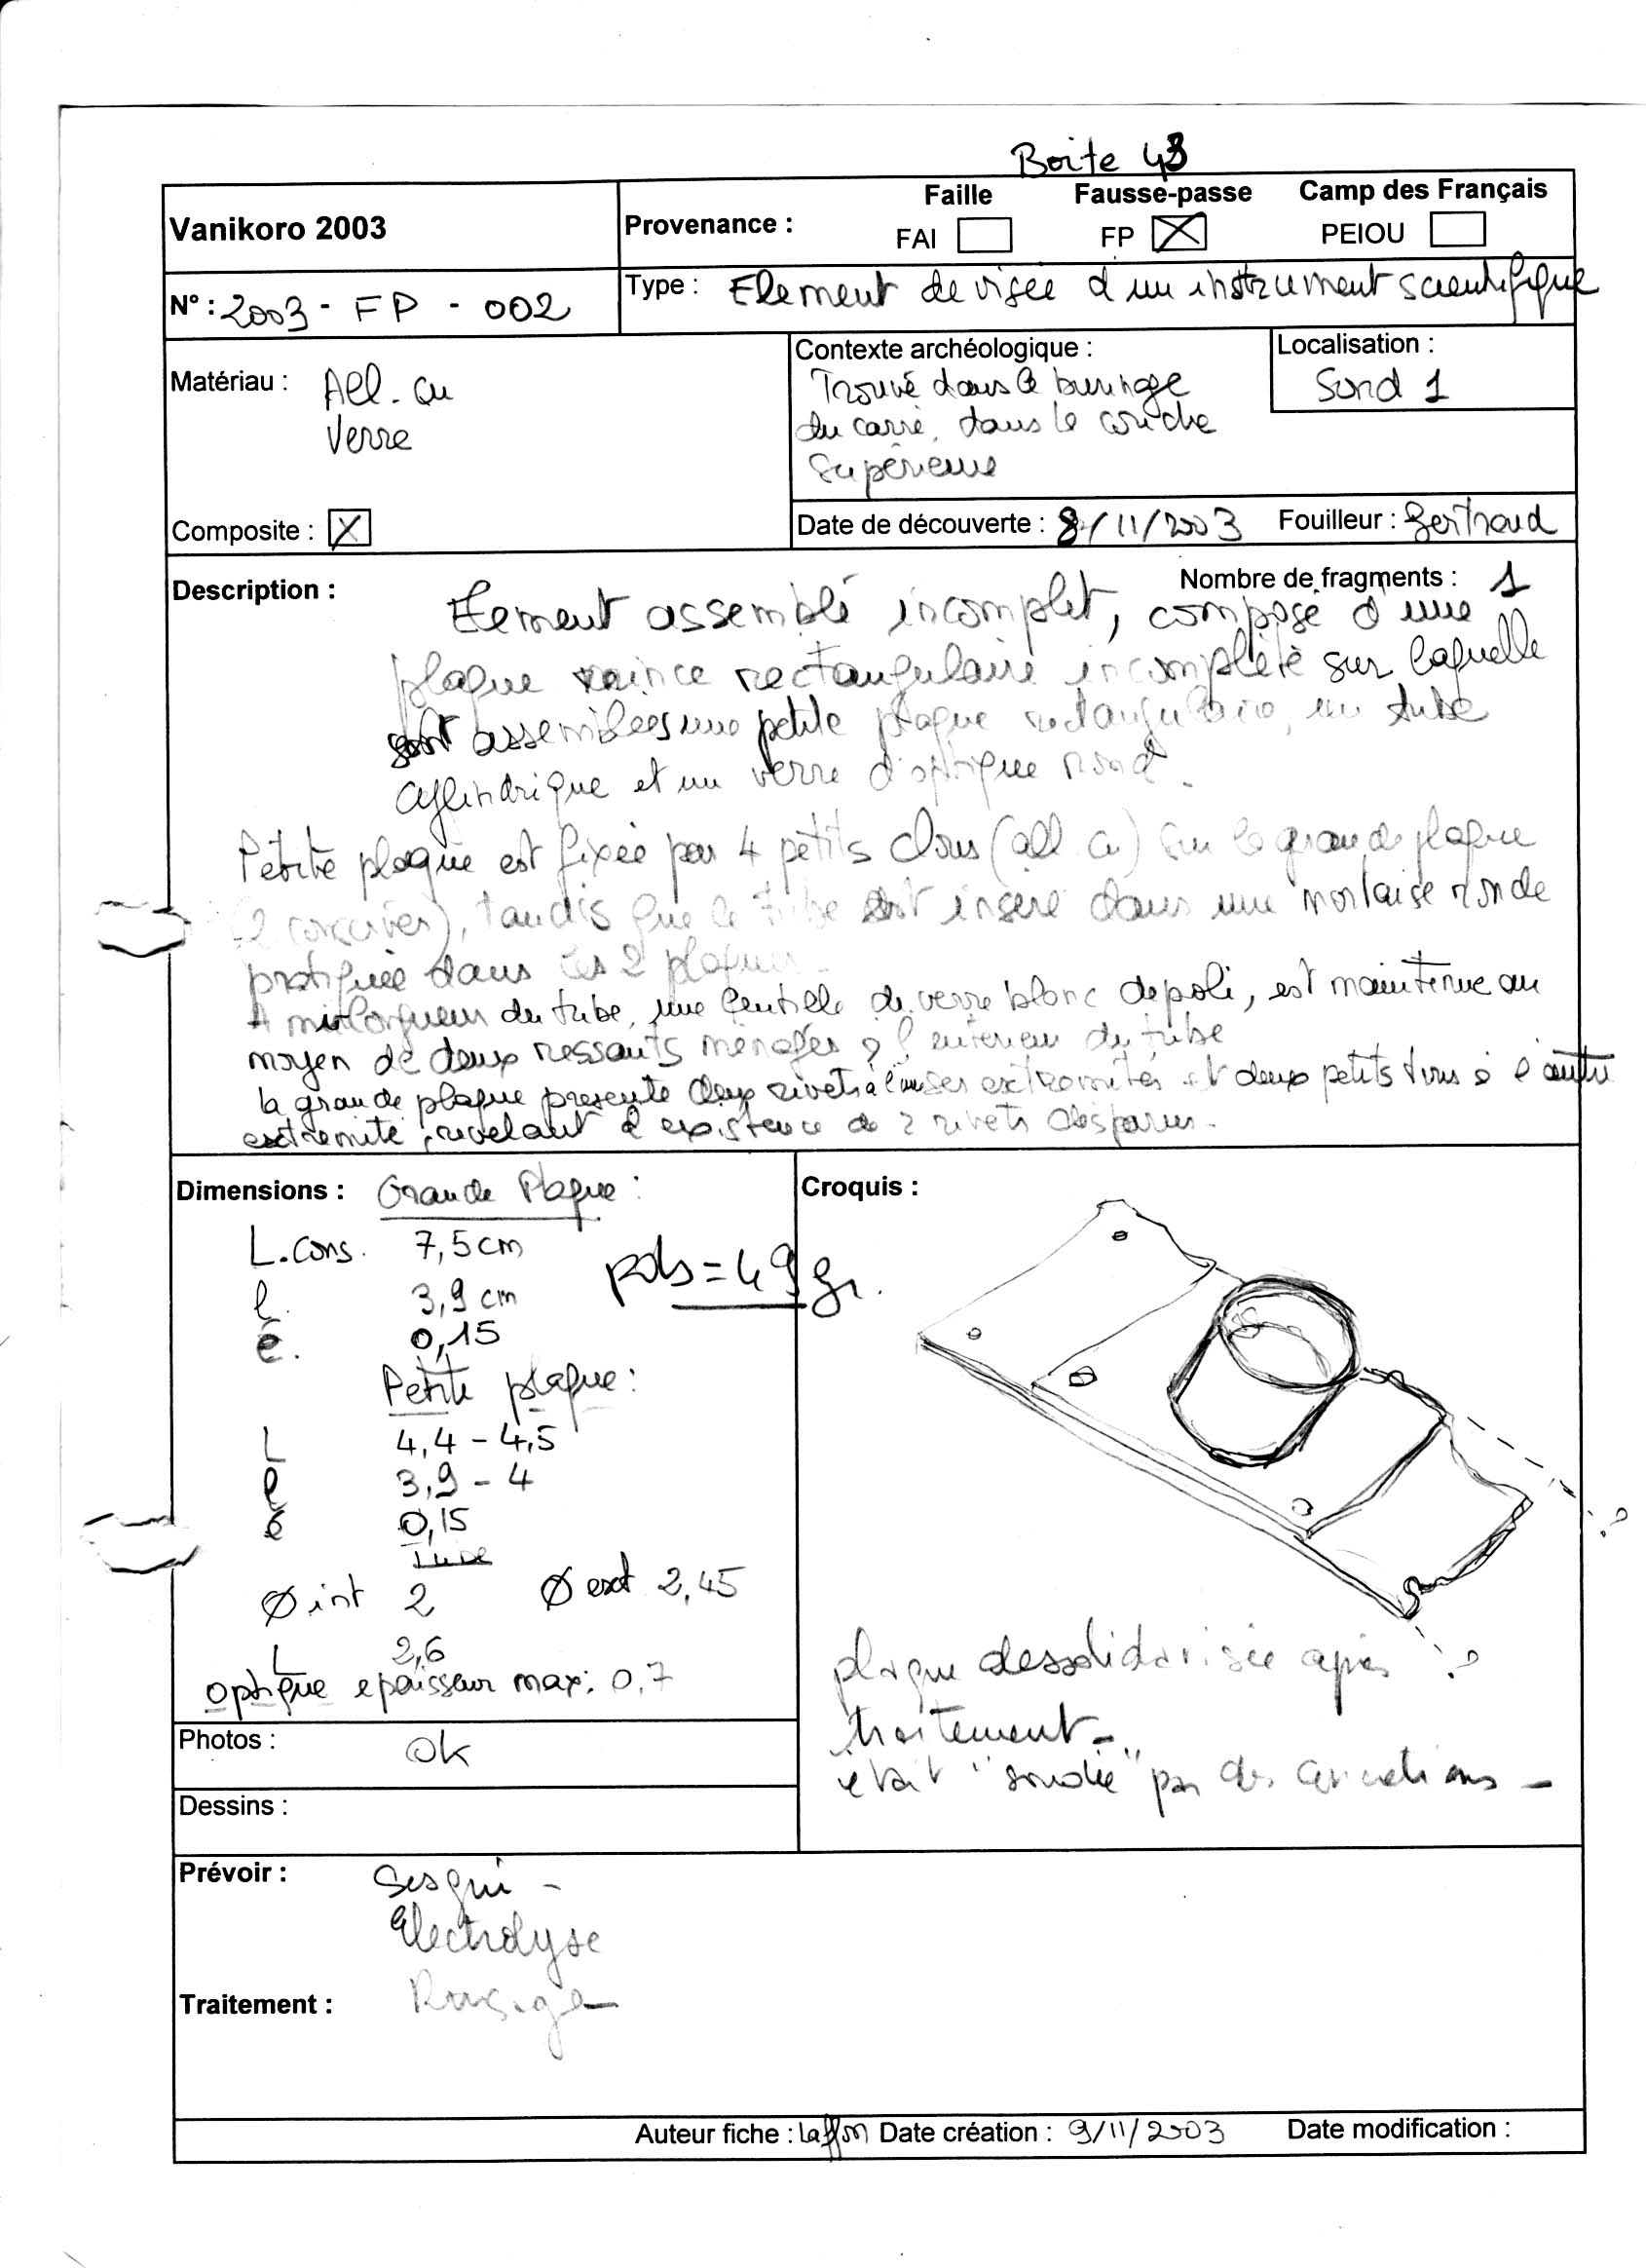 Boite 43
Faille Fausse-passe Camp des Français
Vanikoro 2003 Provenance : FAI FP PEIOU
N° : 2003 - FP - 002 Type : Element de visée d'un instrument scientifique
Matériau : All. Cu
Verre
Contexte archéologique :
Trouvé dans le
du carré, dans la couche
Supérieure
Localisation :
Sond 1
Composite : X Date de découverte : 8/11/2003 Fouilleur : Bertrand
Description : Nombre de fragments : 1
Element assemblé incomplet, composé d'une
plaque mince rectangulaire incomplète sur laquelle
sont assemblées une petite plaque rectangulaire, un tube
cylindrique et un verre d'optique rond.
Petite plaque est fixée par 4 petits clous (all Cu) sur la grande plaque
(2 conservés), tandis que le tube est inséré dans une mortaise ronde
pratiquée dans les 2 plaques.
A mi longueur du tube, une lentille de verre blanc depoli, est maintenue au
moyen de deux ressauts ménagés à l'intérieur du tube
la grande plaque presente deux rivets à l'une ses extremités et deux petits trous à l'autre
extremité, revelant l'existence de 2 rivets disparus.
Dimensions : Grande Plaque :
L. Cons. 7,5 cm
l. 3,9 cm
é. 0,15
pds = 49 gr.
Petite plaque :
L 4,4 - 4,5
l 3,9 - 4
é 0,15
Tube
Ø int 2 Ø ext 2,45
L 2,6
optique epaisseur max: 0,7
Croquis :
?
?
plaque dessolidarisée après
traitement -
était "soudée" par des concretions -
Photos : OK
Dessins :
Prévoir : Sesqui -
Electrolyse
Traitement : Rinçage
Auteur fiche : Laffon Date création : 9/11/2003 Date modification :